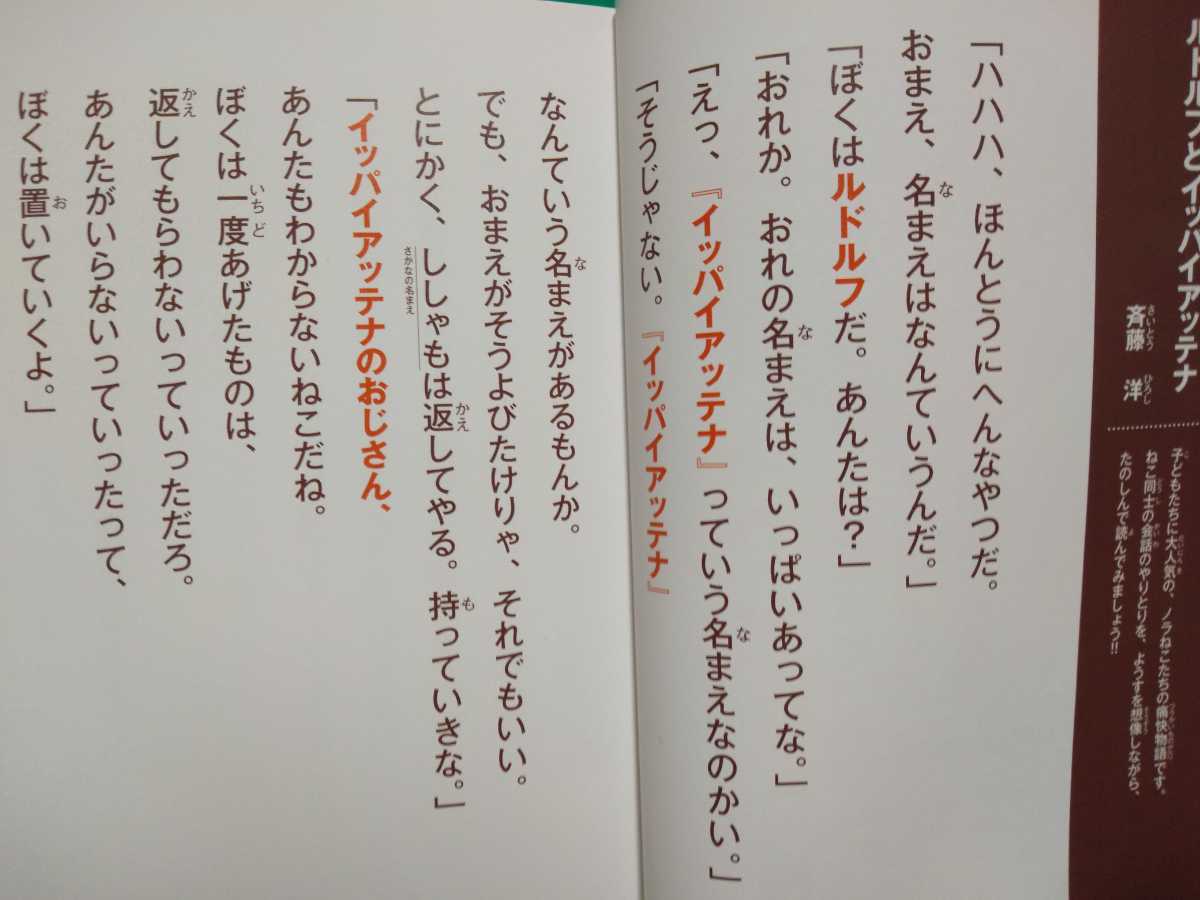 ルドルフとイッパイアッテナ
斉藤 洋
子どもたちに大人気の、ノラねこたちの痛快物語です。
ねこ同士の会話のやりとりを、ようすを想像しながら、
たのしんで読んでみましょう!!
「ハハハ、ほんとうにへんなやつだ。
おまえ、名まえはなんていうんだ。」
「ぼくはルドルフだ。あんたは?」
「おれか。おれの名まえは、いっぱいあってな。」
「えっ、『イッパイアッテナ』っていう名まえなのかい。」
「そうじゃない。『イッパイアッテナ』
なんていう名まえがあるもんか。
でも、おまえがそうよびたけりゃ、それでもいい。
とにかく、ししゃもは返してやる。持っていきな。」
さかなの名まえ
「イッパイアッテナのおじさん、
あんたもわからないねこだね。
ぼくは一度あげたものは、
返してもらわないっていっただろ。
あんたがいらないっていったって、
ぼくは置いていくよ。」